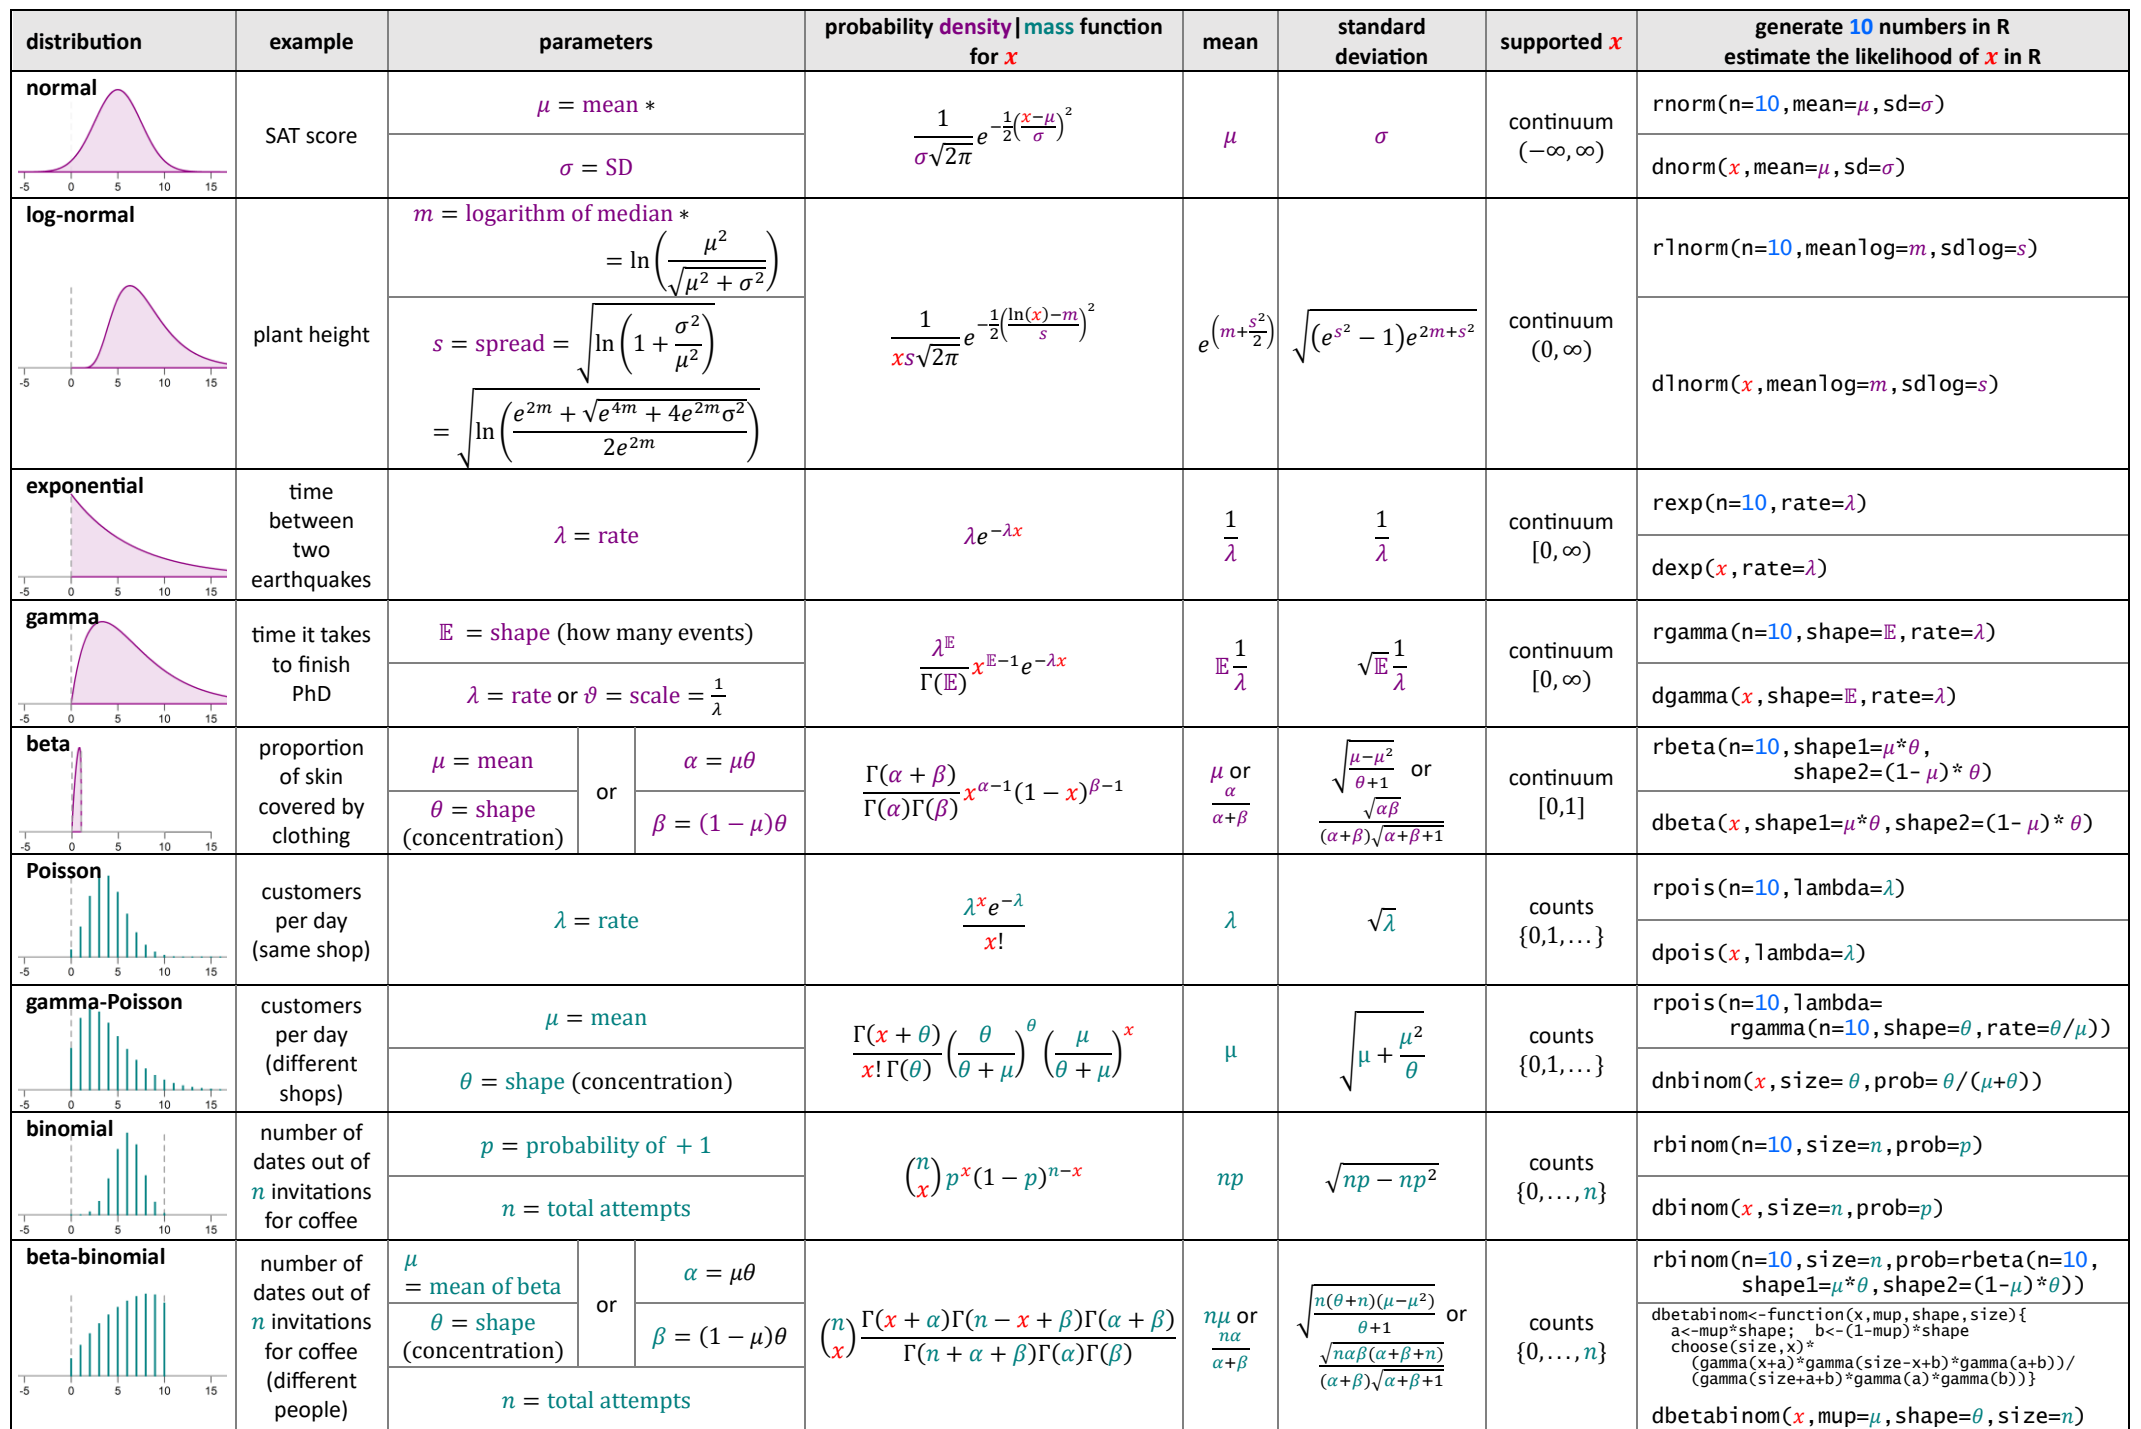 distribution
example
parameters
probability density|mass function
for x
mean
standard
deviation
supported x
generate 10 numbers in R
estimate the likelihood of x in R
normal
-5 0 5 10 15
SAT score
μ = mean *
σ = SD
1/(σ√2π) e^(−1/2((x−μ)/σ)²)
μ
σ
continuum
(−∞, ∞)
rnorm(n=10,mean=μ,sd=σ)
dnorm(x,mean=μ,sd=σ)
log-normal
-5 0 5 10 15
plant height
m = logarithm of median *
= ln(μ²/√(μ² + σ²))
s = spread = √(ln(1 + σ²/μ²))
= √(ln((e^2m + √(e^4m + 4e^2m σ²))/(2e^2m)))
1/(xs√2π) e^(−1/2((ln(x)−m)/s)²)
e^(m+s²/2)
√((e^s² − 1)e^(2m+s²))
continuum
(0, ∞)
rlnorm(n=10,meanlog=m,sdlog=s)
dlnorm(x,meanlog=m,sdlog=s)
exponential
-5 0 5 10 15
time
between
two
earthquakes
λ = rate
λe^(−λx)
1/λ
1/λ
continuum
[0, ∞)
rexp(n=10,rate=λ)
dexp(x,rate=λ)
gamma
-5 0 5 10 15
time it takes
to finish
PhD
𝔼 = shape (how many events)
λ = rate or ϑ = scale = 1/λ
λ^𝔼/Γ(𝔼) x^(𝔼−1) e^(−λx)
𝔼 1/λ
√𝔼 1/λ
continuum
[0, ∞)
rgamma(n=10,shape=𝔼,rate=λ)
dgamma(x,shape=𝔼,rate=λ)
beta
-5 0 5 10 15
proportion
of skin
covered by
clothing
μ = mean
θ = shape
(concentration)
or
α = μθ
β = (1 − μ)θ
Γ(α + β)/(Γ(α)Γ(β)) x^(α−1)(1 − x)^(β−1)
μ or
α/(α+β)
√((μ−μ²)/(θ+1)) or
√(αβ)/((α+β)√(α+β+1))
continuum
[0,1]
rbeta(n=10,shape1=μ*θ,
shape2=(1-μ)*θ)
dbeta(x,shape1=μ*θ,shape2=(1-μ)*θ)
Poisson
-5 0 5 10 15
customers
per day
(same shop)
λ = rate
λ^x e^(−λ)/x!
λ
√λ
counts
{0,1,...}
rpois(n=10,lambda=λ)
dpois(x,lambda=λ)
gamma-Poisson
-5 0 5 10 15
customers
per day
(different
shops)
μ = mean
θ = shape (concentration)
Γ(x + θ)/(x! Γ(θ)) (θ/(θ + μ))^θ (μ/(θ + μ))^x
μ
√(μ + μ²/θ)
counts
{0,1,...}
rpois(n=10,lambda=
rgamma(n=10,shape=θ,rate=θ/μ))
dnbinom(x,size=θ,prob=θ/(μ+θ))
binomial
-5 0 5 10 15
number of
dates out of
n invitations
for coffee
p = probability of + 1
n = total attempts
(n x) p^x (1 − p)^(n−x)
np
√(np − np²)
counts
{0,...,n}
rbinom(n=10,size=n,prob=p)
dbinom(x,size=n,prob=p)
beta-binomial
-5 0 5 10 15
number of
dates out of
n invitations
for coffee
(different
people)
μ
= mean of beta
θ = shape
(concentration)
or
α = μθ
β = (1 − μ)θ
n = total attempts
(n x) Γ(x + α)Γ(n − x + β)Γ(α + β)/(Γ(n + α + β)Γ(α)Γ(β))
nμ or
nα/(α+β)
√(n(θ+n)(μ−μ²)/(θ+1)) or
√(nαβ(α+β+n))/((α+β)√(α+β+1))
counts
{0,...,n}
rbinom(n=10,size=n,prob=rbeta(n=10,
shape1=μ*θ,shape2=(1-μ)*θ))
dbetabinom<-function(x,mup,shape,size){
a<-mup*shape; b<-(1-mup)*shape
choose(size,x)*
(gamma(x+a)*gamma(size-x+b)*gamma(a+b))/
(gamma(size+a+b)*gamma(a)*gamma(b))}
dbetabinom(x,mup=μ,shape=θ,size=n)